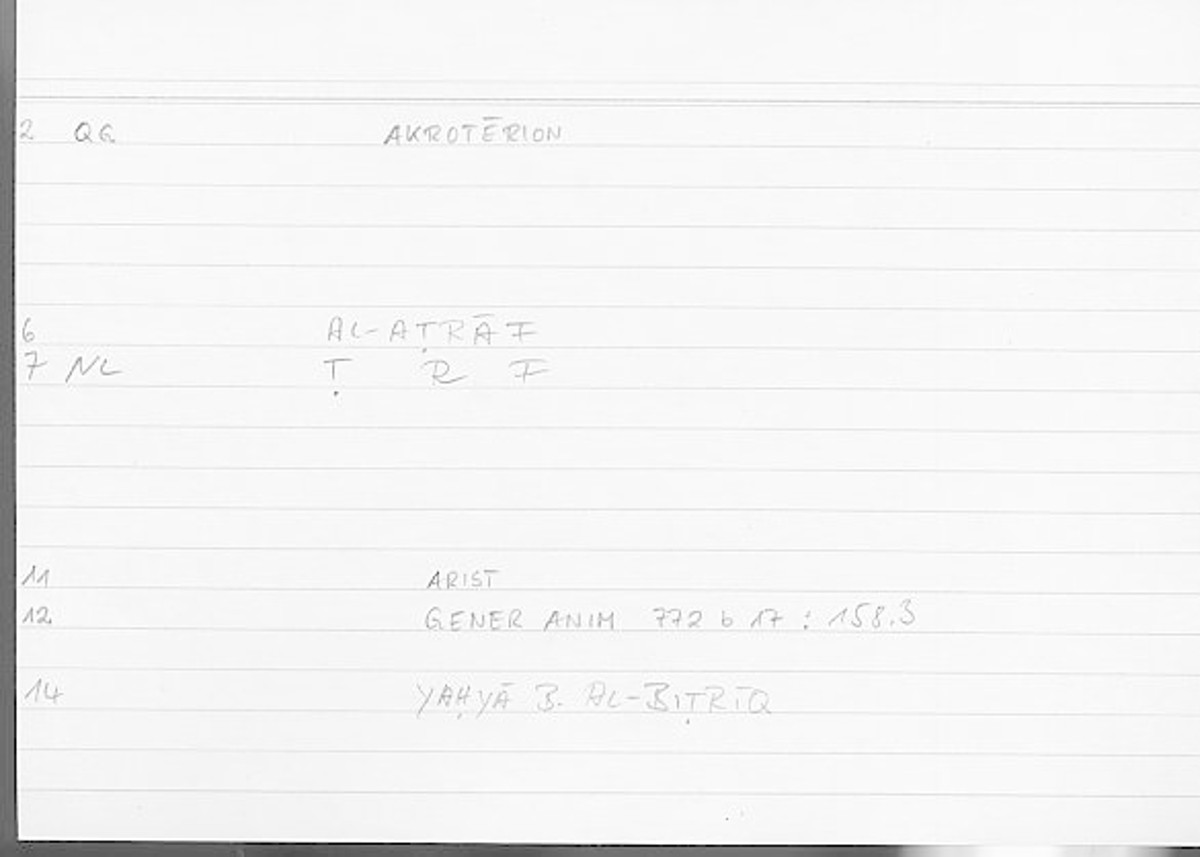 2 QG AKROTĒRION
6 AL-AṬRĀF
7 NL Ṭ R F
11 ARIST
12 GENER ANIM 772 b 17 : 158.3
14 YAḤYĀ B. AL-BIṬRĪQ